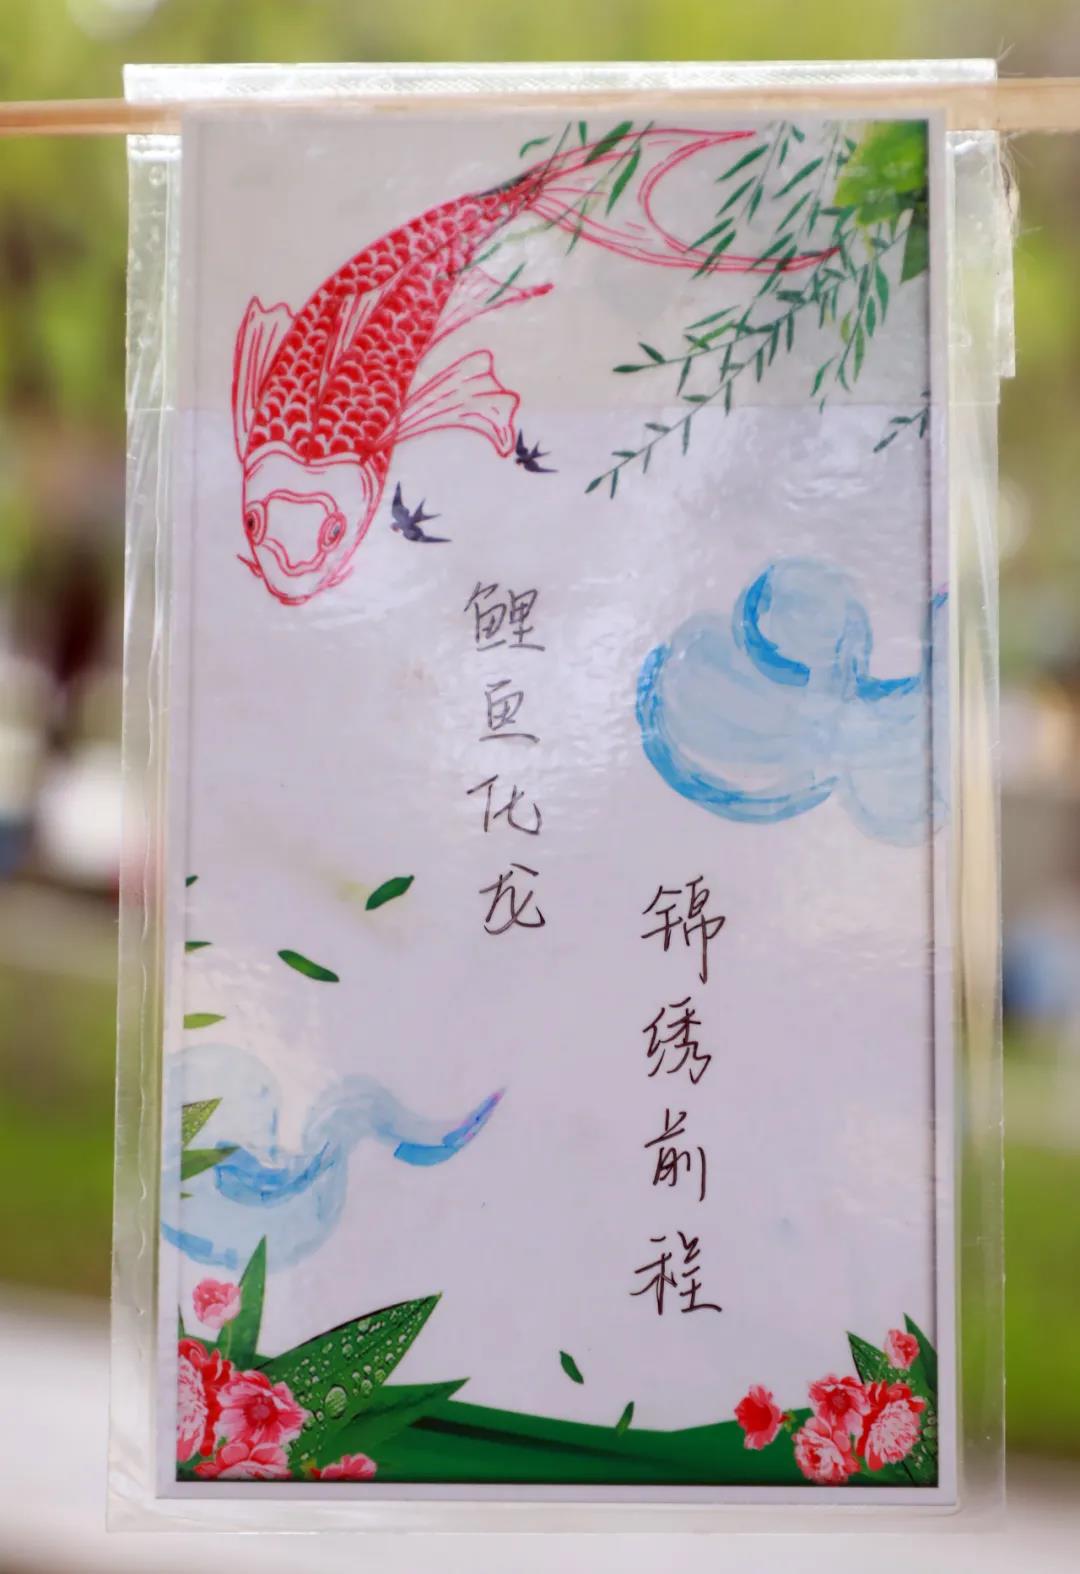 鲤鱼化龙
锦绣前程